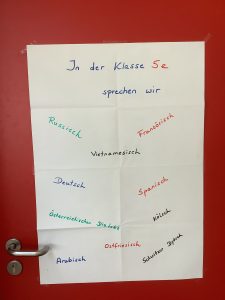 In der Klasse 5e
sprechen wir
Russisch
Französisch
Vietnamesisch
Deutsch
Spanisch
Österreichischen Dialekt
Kölsch
Ostfriesisch
Arabisch
Schwitzer